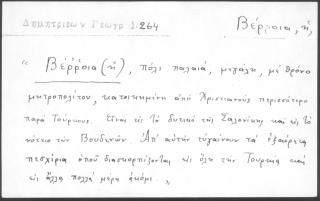 Δημητριεων Γεωγρ 1.264
Βέρροια, ἡ,
" Βέρροια (ἡ), πόλι παλαιά, μεγάλη, μὲ θρόνο
μητροπολίτου, κατοικημένη ἀπὸ Χριστιανοὺς περισσότερο
παρὰ Τούρκους. Εἶναι εἰς τὸ δυτικὸ τῆς Σαλονίκης καὶ εἰς τὸ
νότειο τῶν Βουδενῶν. Ἀπ' αὐτὴν εὐγαίνουν τὰ ἐξαίρετα
πεσκίρια ὁποῦ διασκορπίζονται εἰς ὅλη τὴν Τουρκία καὶ
εἰς ἄλλα πολλὰ μέρη ἀκόμι. "